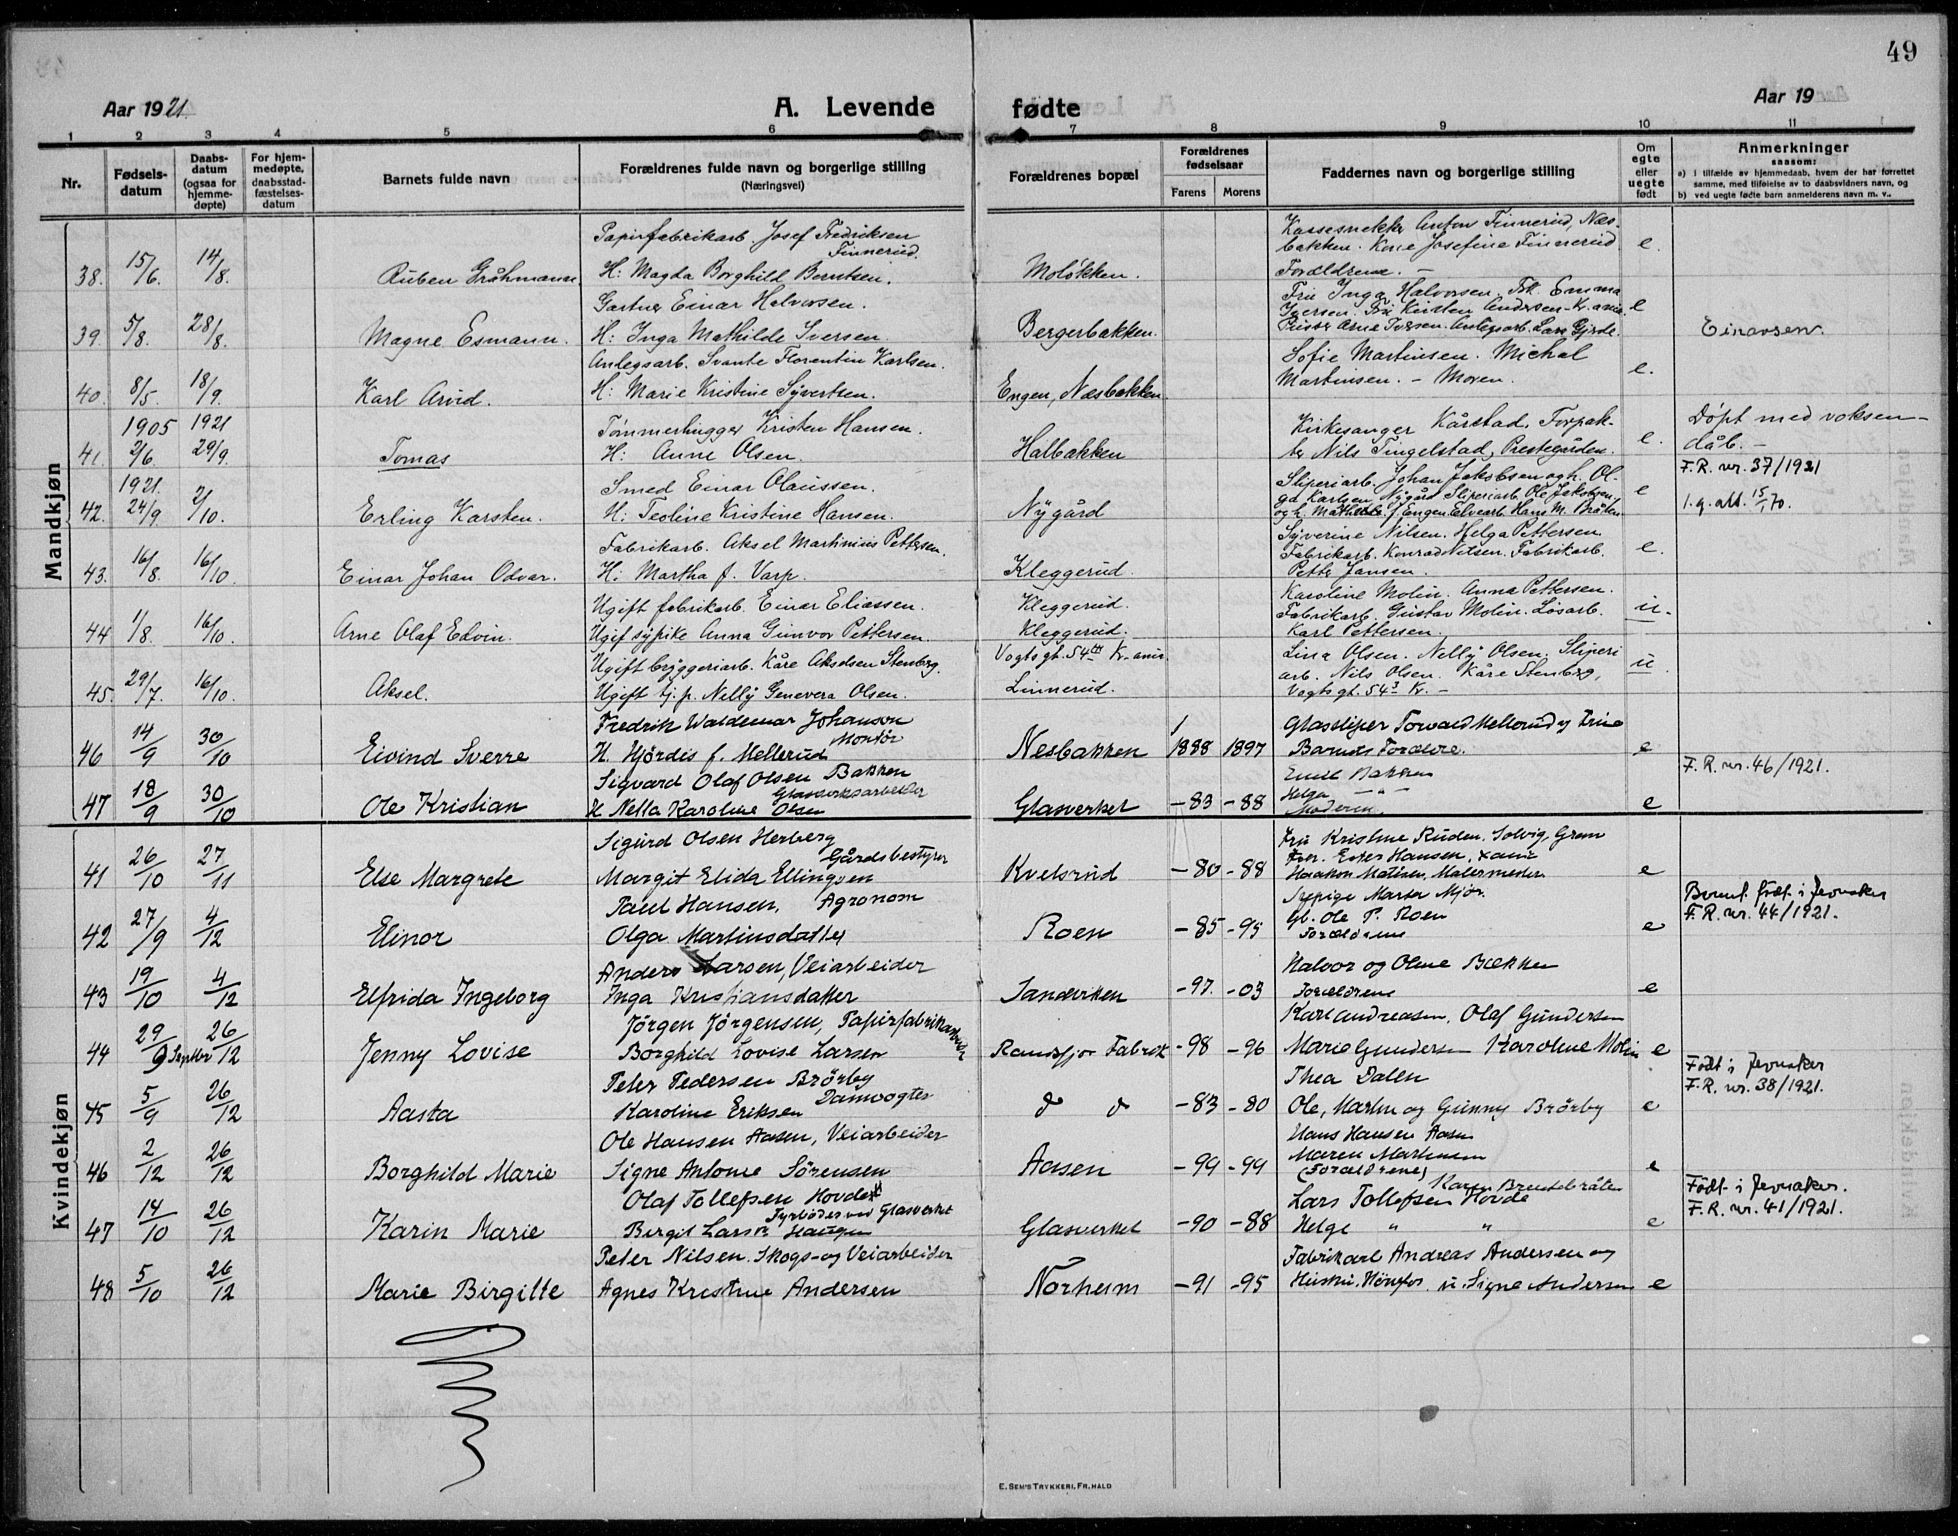 49
Aar 1921.
A. Levende fødte
Aar 19
1 2 3 4 5 6 7 8 9 10 11
Nr.
Fødsels-
datum
Daabs-
datum
(ogsaa for
hjemme-
døpte)
For hjem-
medøpte,
daabsstad-
fæstelses-
datum
Barnets fulde navn
Forældrenes fulde navn og borgerlige stilling
(Næringsvei)
Forældrenes bopæl
Forældrenes
fødselsaar
Farens Morens
Faddernes navn og borgerlige stilling
Om
egte
eller
uegte
født
Anmerkninger
saasom:
a) i tilfælde av hjemmedaab, hvem der har forrettet
samme, med tilføielse av to daabsvidners navn, og
b) ved uegte fødte barn anmelderens navn m. v..
Mandkjøn
Papirfabrikarb. Josef Fredriksen
Finnerud.
Kassesnekker Anton Finnerud, Næs-
bakken. Kone Josefine Finnerud
38. 15/6. 14/8. Ruben Gråhmann H: Magda Borghild Berntsen. Moløkken. Forældrene. – e.
Gartner Einar Halvorsen
Fru Inga Halvorsen. Frk. Emma
Iversen. Frk Kirsten Andersen Kr.ania.
39. 5/8. 28/8. Magne Esmann. H: Inga Mathilde Iversen. Bergerbakken. Arne Iversen. Anlegsarb. Lars Gjerde e Einarsen.
Anlegsarb. Svante Florentin Karlsen.
Sofie Martinsen. Michal
40. 8/5. 18/9. Karl Arvid. H: Marie Kristine Syvertsen. Engen, Næsbakken Martinsen. – Moren. e.
1905 1921
Tømmerhugger Kristen Hansen.
Kirkesanger Kårstad, Forpak-
Døpt med voksen-
41. 2/6. 29/9. Tomas H: Anne Olsen. Halbakken ter Nils Tingelstad, Prestegården. e. dåb. –
F.R. nr. 37/1921
1921.
Smed Einar Olaussen.
Sliperiarb. Johan Jakobsen og h. Ol-
ga Karlsen, Nygård Sliperiarb. Ole Jakobsen,
42. 24/9. 2/10. Erling Karsten. H: Teoline Kristine Hansen. Nygård og h. Mathilde f. Engen. Elvearb. Hans M. Bråten e l.g. att. 15/1 70.
Fabrikarb. Aksel Martinius Pettersen.
Syverine Nilsen. Helga Pettersen.
Fabrikarb. Konrad Nilsen. Fabrikarb.
43. 16/8. 16/10. Einar Johan Odvar. H: Martha f. Varp. Kleggerud. Petter Jansen. e.
Ugift fabrikarb. Einar Eliassen. Kleggerud.
Karoline Molin. Anna Pettersen.
Fabrikarb. Gustav Molin. Løsarb.
44 1/8. 16/10. Arne Olaf Edvin. Ugif sypike Anna Gunvor Pettersen. Kleggerud. Karl Pettersen. u.
Ugift bryggeriarb. Kåre Akselsen Stenberg. Vogtsgt. 54 Kr.ania.
Lina Olsen. Nelly Olsen. Sliperi
arb. Nils Olsen. Kåre Stenberg,
45. 29/7. 16/10. Aksel. Ugift tj.p. Nelly Genevera Olsen. Linnerud. Vogtsgt. 54 Kr. – u.
Fredrik Waldemar Johanson
Montør
Glassliper Torvald Mellerud og Trine
46 14/9 30/10 Eivind Sverre H. Hjørdis f. Mellerud Nesbakken 1888 1897 Barnets Forældre. e
Sigvard Olaf Olsen Bakken
Glasverksarbeider
Emil Bakken
Helga – " –
F.R. nr. 46/1921.
47 18/9 30/10 Ole Kristian H Nella Karoline Olsen Glasverket –83 –88 Moderen. e
Kvindekjøn
Sigurd Olsen Herberg
Gårdsbestyrer
Fru Kristine Ruden. Solvig Gram
Ester Hansen,
41 26/10 27/11 Else Margrete Margit Elida Ellingsen Kvelsrud –80 –88 Haakon Malermester e
Paul Hansen, Agronom
Marta Mjør.
Gb. Ole P. Roen
Barnet født i Jevnaker
F.R. nr. 44/1921.
42 27/9 4/12 Elinor Olga Martinsdatter Roen –85 –95 Forældrene e
Anders Larsen, Veiarbeider
Halvor og Oline Bækken
43 19/10 4/12 Elfrida Ingeborg Inga Kristiansdatter Sandviken –97. –03 Forældrene e
Jørgen Jørgensen, Papirfabrikarbeider
Karl Andreasen, Olaf Gundersen
44 29/9 Septbr 26/12 Jenny Lovise Borghild Lovise Larsen Randsfjor Fabrik –98 –96 Marie Gundersen Karoline Molin e
Peter Pedersen Brørby
Damvogter
Thea Dalen
Født i Jevnaker
F.R. nr. 38/1921.
45 5/9 26/12 Aasta Karoline Eriksen d d –83 –80 Ole, Martin og Gunny Brørby e
Ole Hansen Aasen, Veiarbeider
Hans Hansen Aasen
Maren Martinsen
46 2/12 26/12 Borghild Marie Signe Antonie Sørensen Aasen –99 –99 (Forældrene) e
Olaf Tollefsen Hovde
Fyrbøder ved Glasverket
Karen Brendebråten
Lars Tollefsen Hovde
Født i Jevnaker.
F.R. nr. 41/1921.
47 14/10 26/12 Karin Marie Birgit Larsd. Haugen Glasverket –90 –88 Helge " " e
Peter Nilsen. Skogs- og Veiarbeider
Fabrikarb Andreas Andersen og
48 5/10 26/12 Marie Birgitte Agnes Kristine Andersen Norheim –91 –95 Hustru, Hønefos. Signe Andersen e
E. SEM'S TRYKKERI, FR.HALD